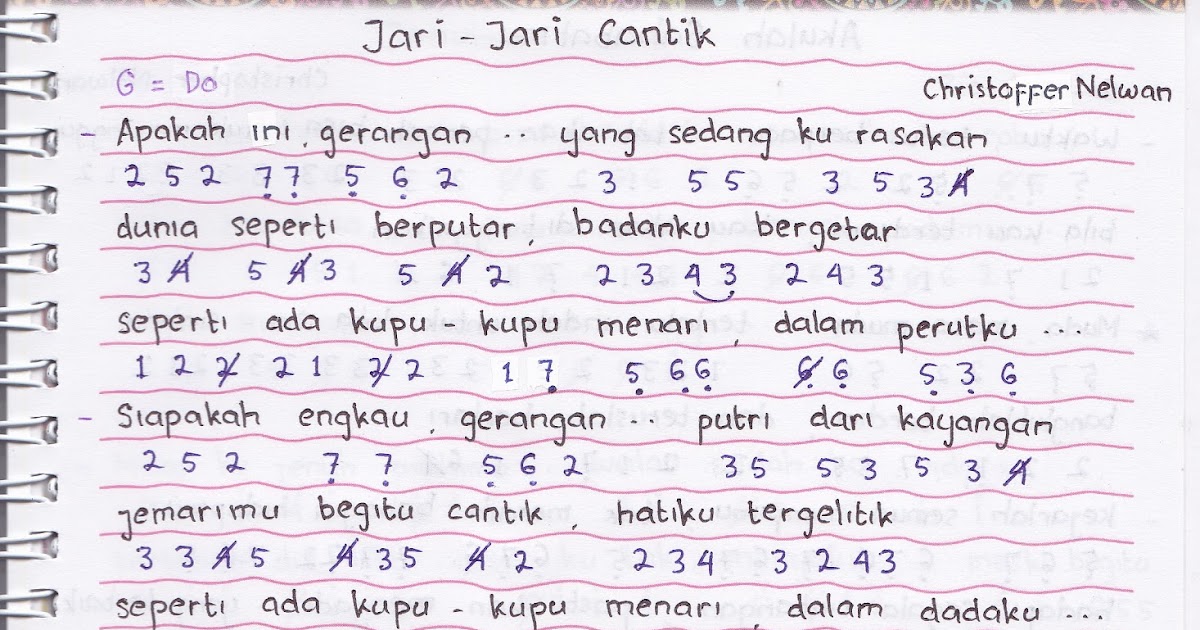 Jari - Jari Cantik
G = Do
Christoffer Nelwan
- Apakah ini, gerangan ... yang sedang ku rasakan
2 5 2 7̣ 7̣ 5̣ 6̣ 2 3 5 5 3 5 3 4̸
dunia seperti berputar, badanku bergetar
3 4̸ 5 4̸ 3 5 4̸ 2 2 3 4 3 2 4 3
seperti ada kupu - kupu menari, dalam perutku ...
1 2 2̸ 2 1 2̸ 2 1 7̣ 5̣ 6̣ 6̣ 6̸̣ 6̣ 5̣ 3̣ 6̣
- Siapakah engkau, gerangan ... putri dari kayangan
2 5 2 7̣ 7̣ 5̣ 6̣ 2 3 5 5 3 5 3 4̸
jemarimu begitu cantik, hatiku tergelitik
3 3 4̸ 5 4̸ 3 5 4̸ 2 2 3 4 3 2 4 3
seperti ada kupu - kupu menari, dalam dadaku ...